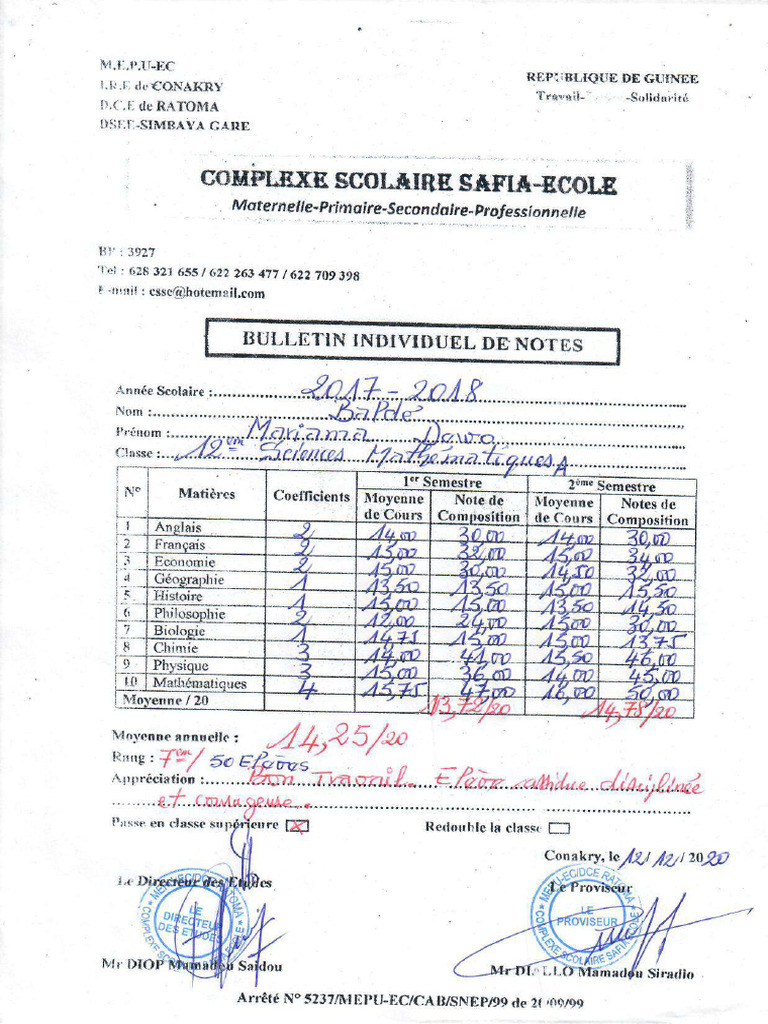 M.E.P.U-EC
I.R.E de CONAKRY
D.C.E de RATOMA
DSEE-SIMBAYA GARE
REPUBLIQUE DE GUINEE
Travail- -Solidarité
COMPLEXE SCOLAIRE SAFIA-ECOLE
Maternelle-Primaire-Secondaire-Professionnelle
BP : 3927
Tel : 628 321 655 / 622 263 477 / 622 709 398
E-mail : csse@hotemail.com
BULLETIN INDIVIDUEL DE NOTES
Année Scolaire : 2017 - 2018
Nom : Baldé
Prénom : Mariama Dewo
Classe : 12ème Sciences Mathématiques A
N° Matières Coefficients 1er Semestre 2ème Semestre
Moyenne de Cours Note de Composition Moyenne de Cours Notes de Composition
1 Anglais 2 14,00 30,00 14,00 30,00
2 Français 2 15,00 32,00 15,00 34,00
3 Economie 2 15,00 30,00 14,50 32,00
4 Géographie 1 13,50 13,50 15,00 15,50
5 Histoire 1 15,00 15,00 13,50 14,50
6 Philosophie 2 12,00 24,00 15,00 30,00
7 Biologie 1 14,75 15,00 15,00 13,75
8 Chimie 3 14,00 41,00 15,50 46,00
9 Physique 3 15,00 36,00 14,00 45,00
10 Mathématiques 4 15,75 47,00 16,00 50,00
Moyenne / 20 13,72/20 14,78/20
Moyenne annuelle : 14,25/20
Rang : 7em/ 50 Elèves
Appréciation : Bon Travail. Elève assidue disciplinée
et courageuse.
Passe en classe supérieure X Redouble la classe
Conakry, le 12/12/2020
Le Directeur des Etudes
Le Proviseur
MEPU-EC/DCE RATOMA
LE DIRECTEUR DES ETUDES
COMPLEXE SCOLAIRE SAFIA-ECOLE
MEPU-EC/DCE RATOMA
LE PROVISEUR
COMPLEXE SCOLAIRE SAFIA-ECOLE
Mr DIOP Mamadou Saidou
Mr DIALLO Mamadou Siradio
Arrêté N° 5237/MEPU-EC/CAB/SNEP/99 de /09/99